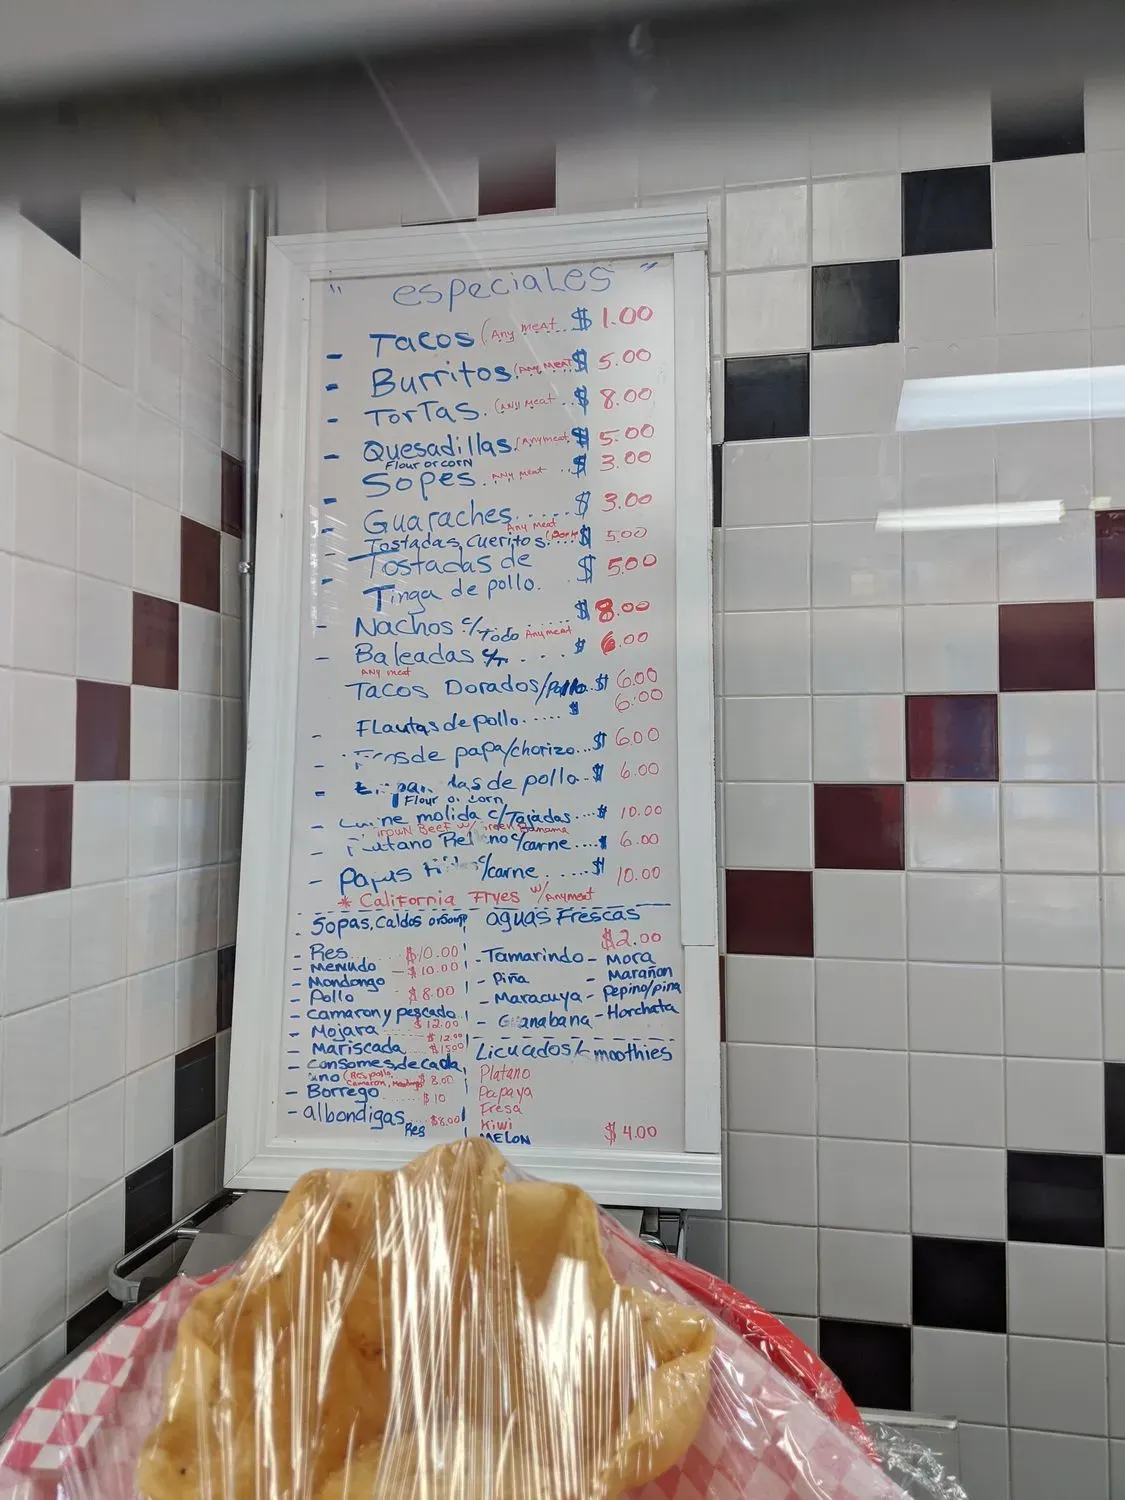 " especiales "
- Tacos (Any meat... $ 1.00
- Burritos (Any meat $ 5.00
- Tortas. (Any meat.. $ 8.00
- Quesadillas. (Any meat. $ 5.00
Flour or corn
- Sopes. Any meat .. $ 3.00
- Guaraches..... $ 3.00
Any meat
- Tostadas, cueritos. ... $ 5.00
- Tostadas de $ 5.00
Tinga de pollo.
- Nachos c/Todo Any meat $ 8.00
- Baleadas .... $ 6.00
Any meat
Tacos Dorados/pollo.. $ 6.00
- Flautas de pollo..... $ 6.00
- de papa/chorizo... $ 6.00
- de pollo.. $ 6.00
Flour or corn
- molida c/Tajadas.... $ 10.00
Beef w/ Green Banana
- c/carne.... $ 6.00
- Papas c/carne. .....$ 10.00
* California Fryes w/Anymeat
- Sopas, Caldos or Soup
- Res $10.00
- Menudo - $10.00
- Mondongo
- Pollo $8.00
- Camaron y pescado
$12.00
- Mojara $12.00
- Mariscada $15.00
- Consomes de cada
uno (Res, pollo, $8.00
Camaron,
- Borrego $10
- albondigas $8.00
Res
aguas Frescas
$2.00
- Tamarindo - Mora
- Piña - Marañon
- Maracuya - Pepino/piña
- Guanabana - Horchata
Licuados/Smoothies
Platano
Papaya
Fresa
Kiwi
MELON $ 4.00